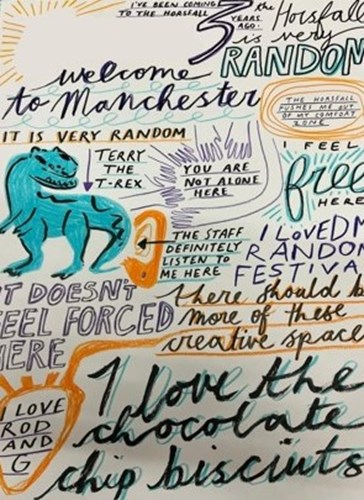 I'VE BEEN COMING
TO THE HORSFALL
3
YEARS
AGO.
the Horsfall
is very
RANDOM
welcome
to Manchester
THE HORSFALL
PUSHES ME OUT
OF MY COMFORT
ZONE
IT IS VERY RANDOM
TERRY
THE
T-REX
YOU ARE
NOT ALONE
HERE
I FEEL
free
HERE
THE STAFF
DEFINITELY
LISTEN TO
ME HERE
I LOVED
RANDOM
FESTIVA
IT DOESN'T
FEEL FORCED
HERE
there should b
more of these
creative space
I LOVE
ROD
AND
G
I love the
chocolate
chip biscuits